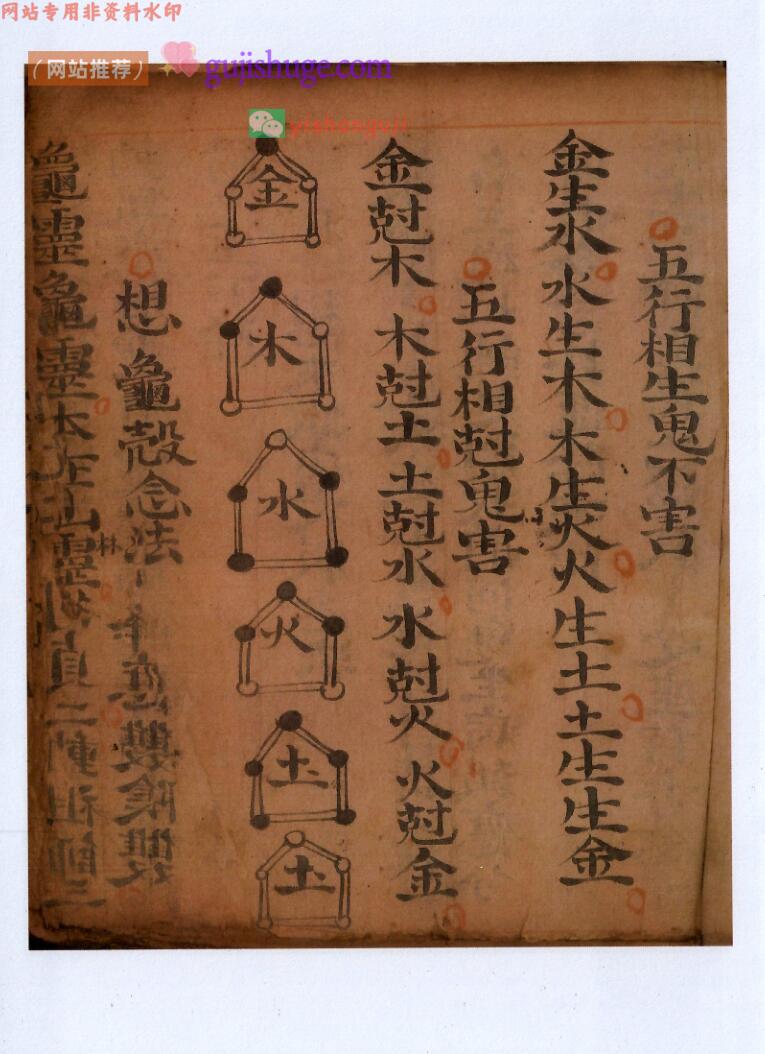 网站专用非资料水印
（网站推荐）
gujishuge.com
yishanguji
五行相生鬼不害
金生水 水生木 木生火 火生土 土生生金
五行相尅鬼害
金尅木 木尅土 土尅水 水尅火 火尅金
金
木
水
火
土
土
想龜殼念法
雙陰雙
龜靈龜靈
靈
祖師